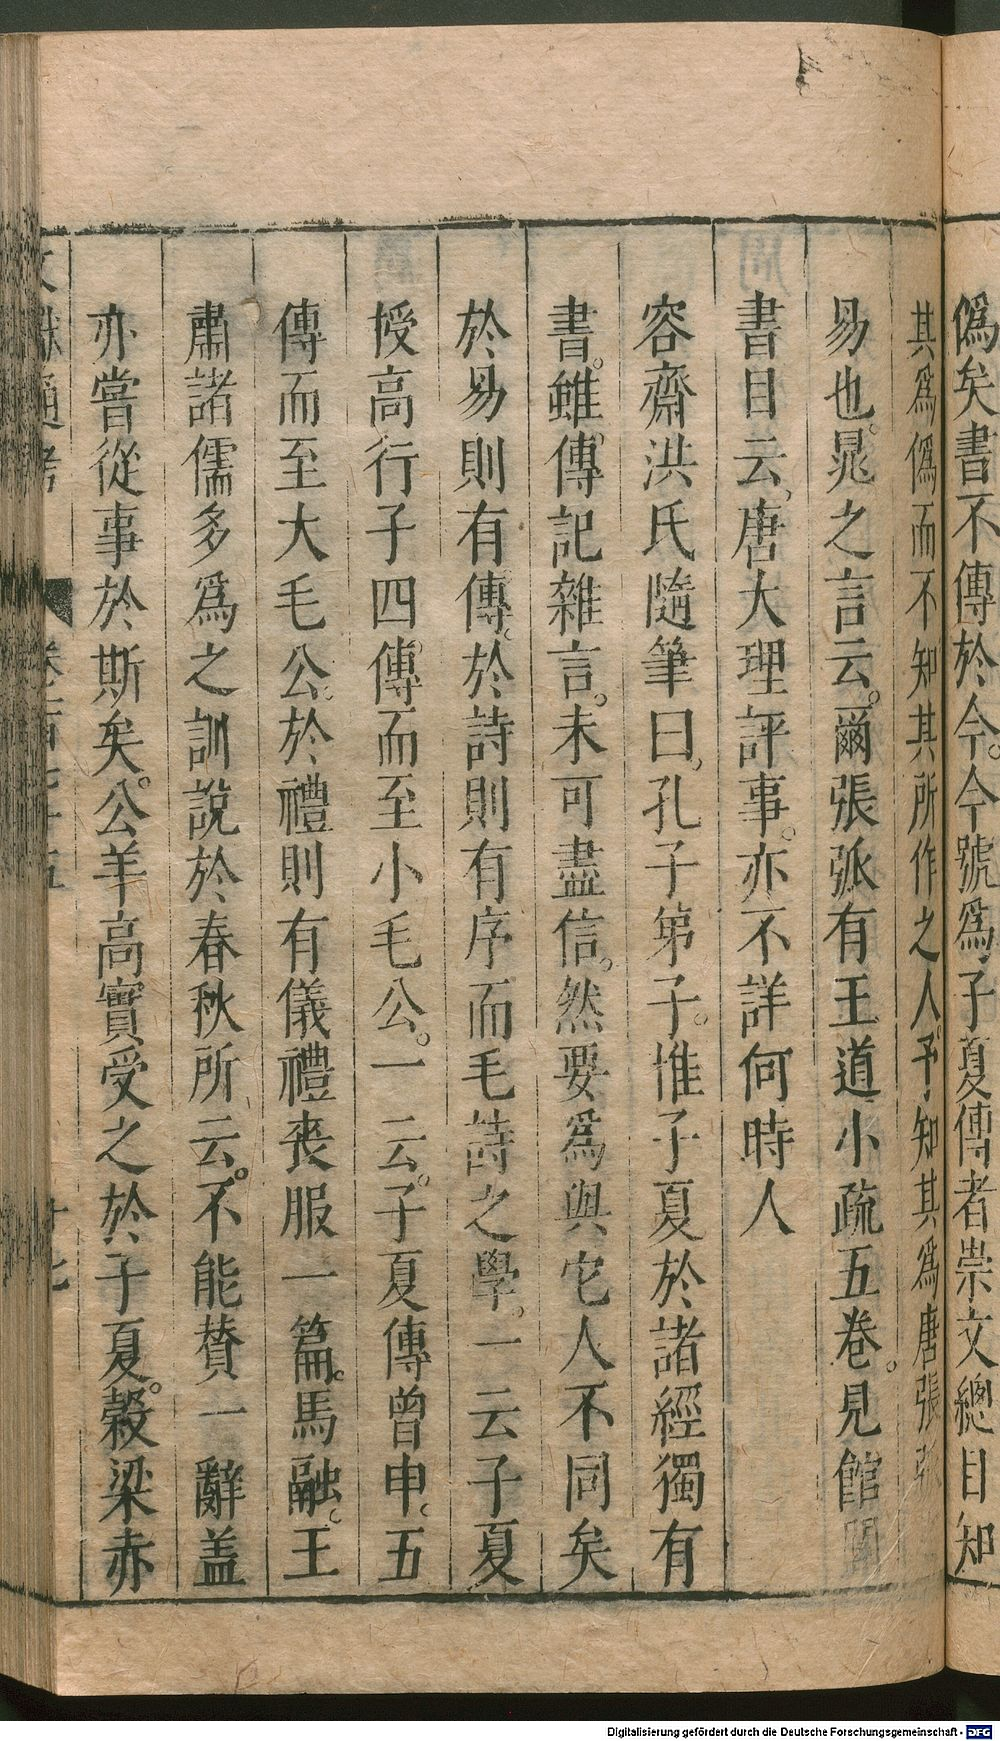 僞矣書不傳於今。今號爲子夏傳者崇文總目知
其爲僞而不知其所作之人予知其爲唐張弧
易也。晁之言云。爾張弧有王道小疏五卷。見館閣
書目云、唐大理評事。亦不詳何時人
容齋洪氏隨筆曰、孔子第子。惟子夏於諸經獨有
書。雖傳記雜言。未可盡信。然要爲與它人不同矣
於易則有傳。於詩則有序而毛詩之學。一云子夏
授高行子四傳而至小毛公。一云。子夏傳曾申。五
傳而至大毛公。於禮則有儀禮喪服一篇。馬融。王
肅諸儒多爲之訓說於春秋所云。不能賛一辭盖
亦嘗從事於斯矣。公羊高實受之於子夏。糓梁赤
文獻通考
Digitalisierung gefördert durch die Deutsche Forschungsgemeinschaft - DFG